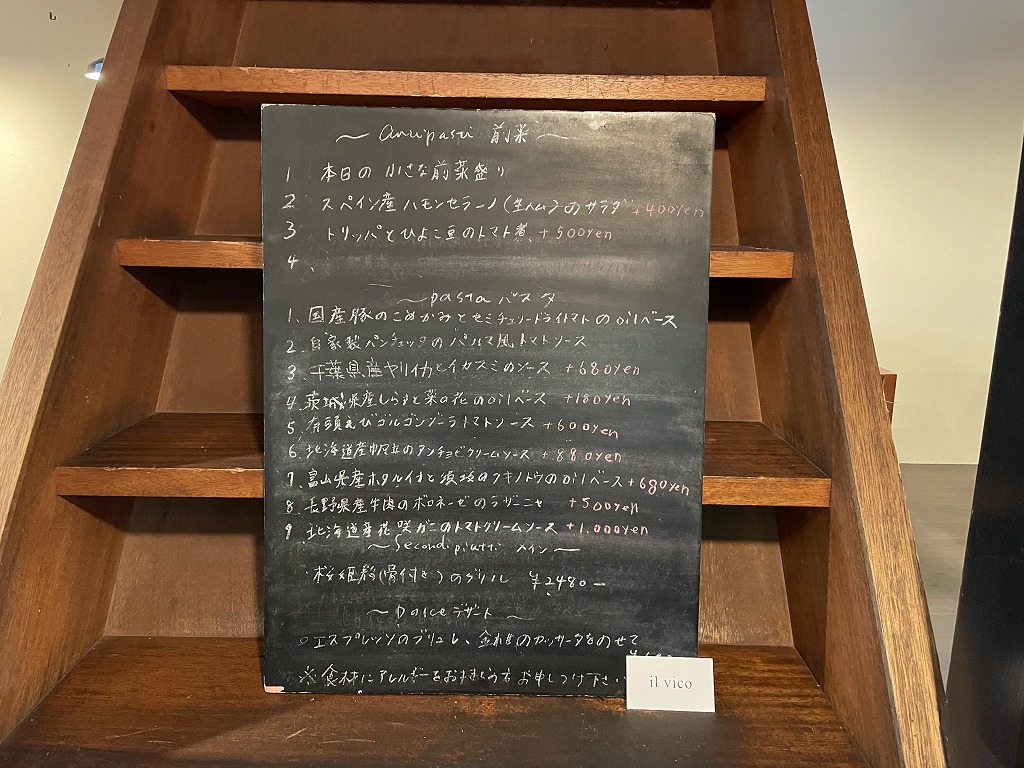 ～ antipasti 前菜 ～
1 本日の 小さな前菜盛り
2 スペイン産ハモンセラーノ(生ハム)のサラダ +400yen
3 トリッパとひよこ豆のトマト煮 +500yen
4、
～ pasta パスタ
1、国産豚のこめかみとセミドライトマトのoilベース
2、自家製パンチェッタのパルマ風トマトソース
3 千葉県産ヤリイカとイカスミのソース +680yen
4、茨城県産しらすと菜の花のoilベース +180yen
5、有頭えびゴルゴンゾーラトマトソース +600yen
6、北海道産帆立のアンチョビクリームソース +880yen
7、富山県産ホタルイカとフキノトウのoilベース +680yen
8、長野県産牛肉のボロネーゼのラザニャ +500yen
9 北海道産花咲がにのトマトクリームソース +1.000yen
～ Secondi piatti メイン ～
・桜姫鶏(骨付き)のグリル ¥2480-
～ Dolce デザート ～
○エスプレッソのブリュレ、カッサータをのせて
※食材にアレルギーをお持ちの方お申しつけ下さい
il vico